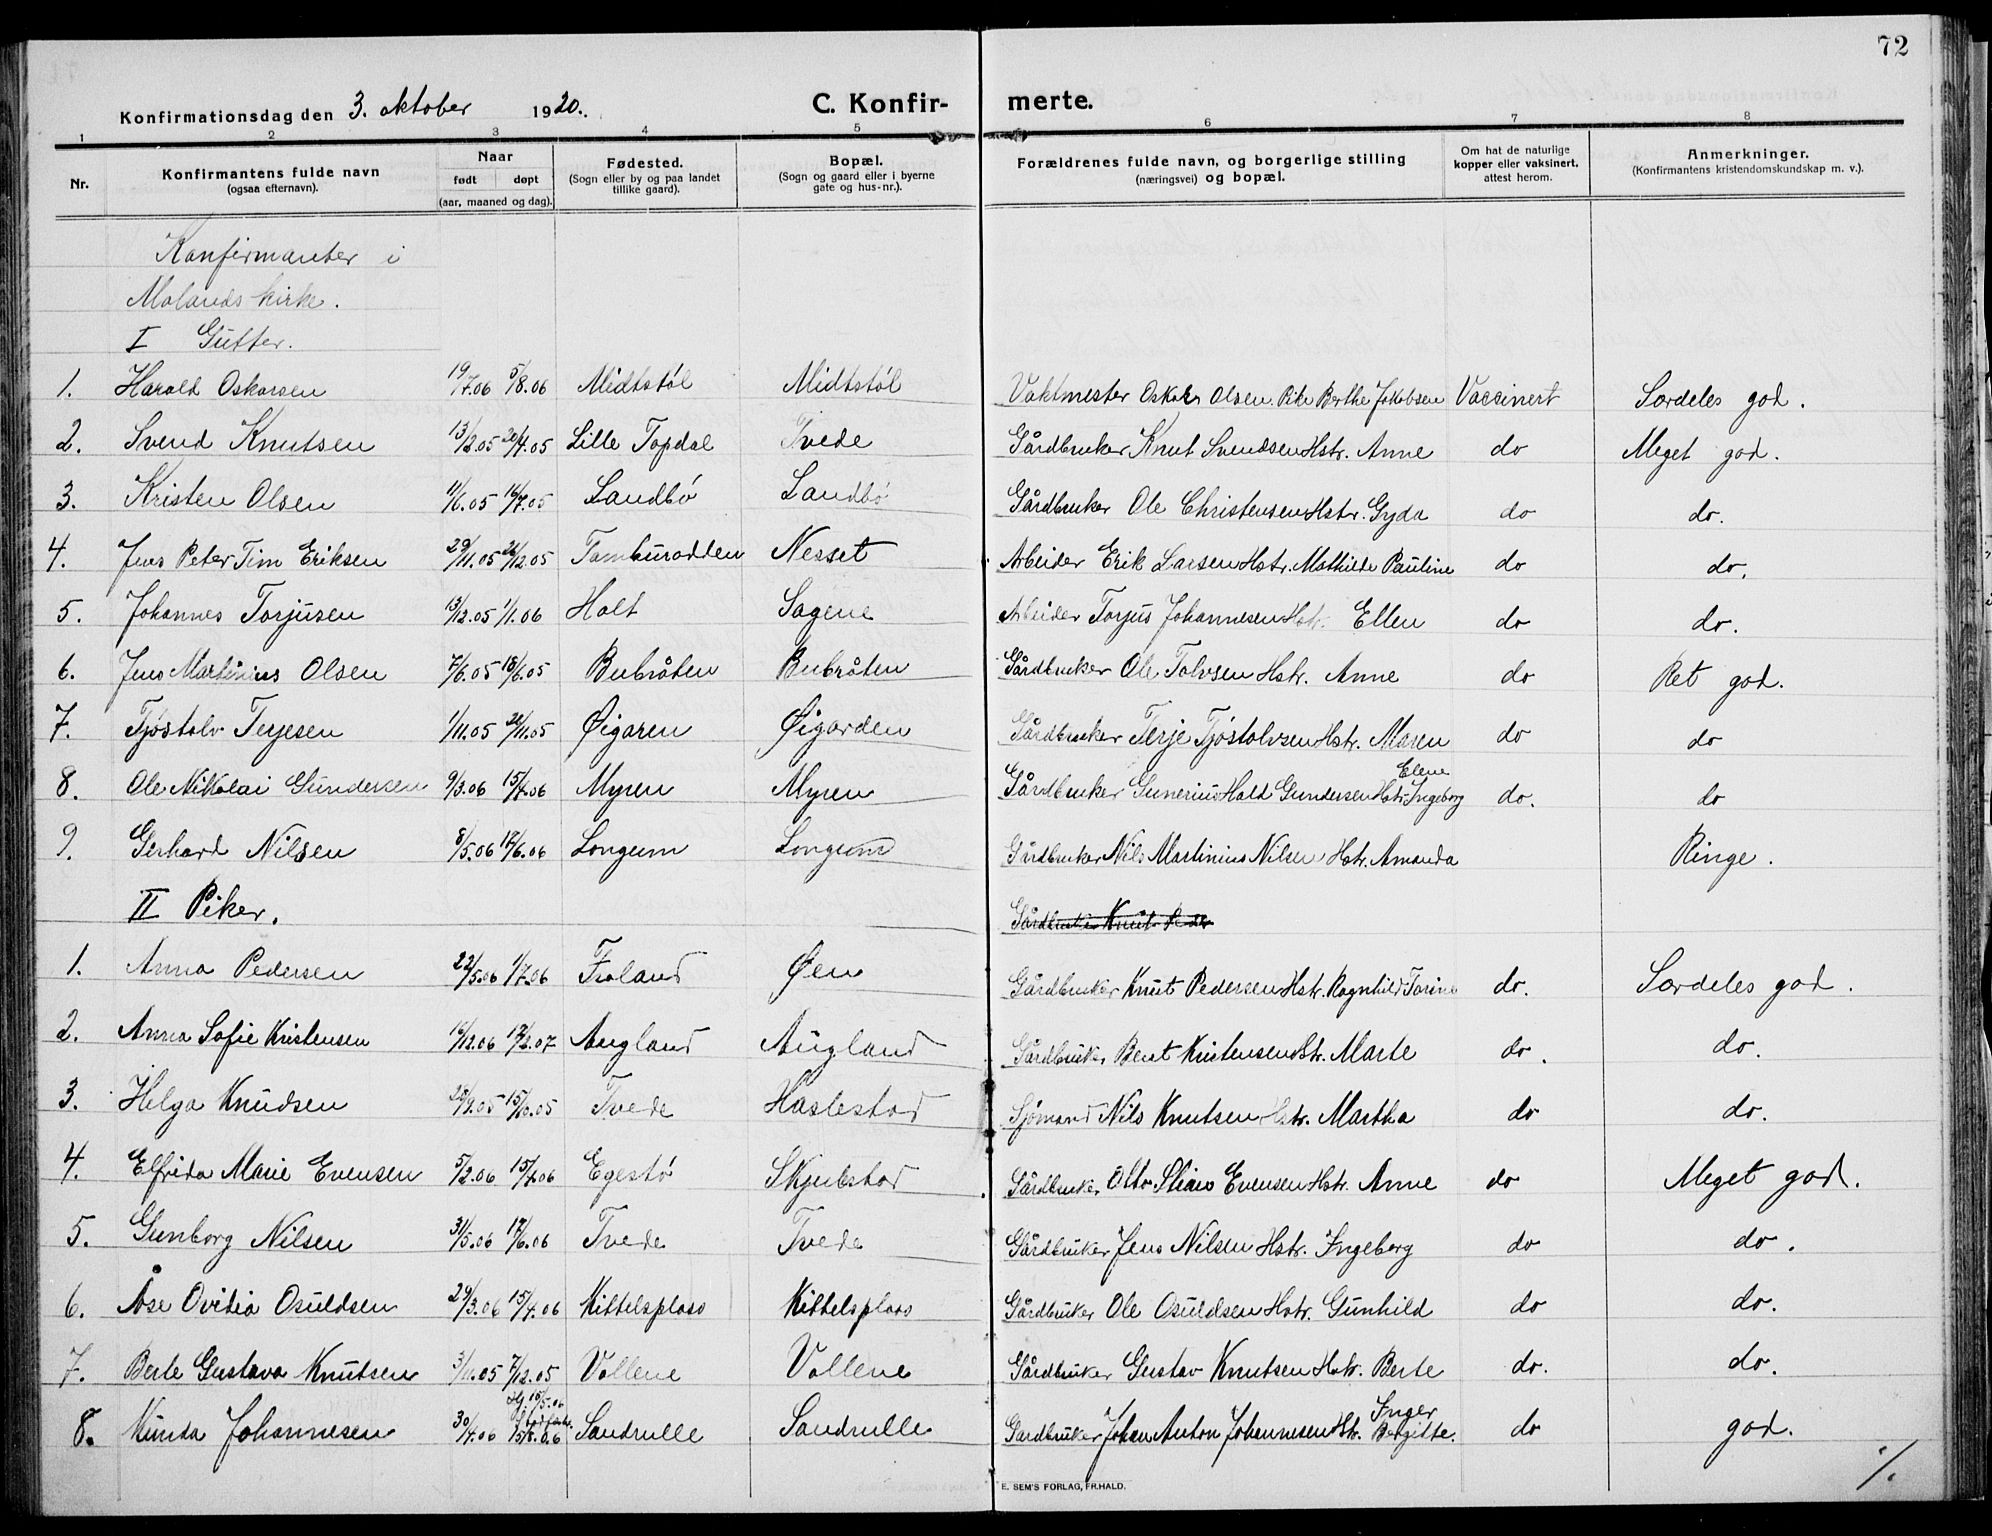 72
Konfirmationsdag den 3. oktober 1920. C. Konfir- merte.
1 2 3 4 5 6 7 8
Nr. Konfirmantens fulde navn (ogsaa efternavn). Naar født døpt (aar, maaned og dag). Fødested. (Sogn eller by og paa landet tillike gaard). Bopæl. (Sogn og gaard eller i byerne gate og hus-nr.). Forældrenes fulde navn, og borgerlige stilling (næringsvei) og bopæl. Om hat de naturlige kopper eller vaksinert. attest herom. Anmerkninger. (Konfirmantens kristendomskundskap m. v.).
Konfirmanter i
Molands kirke.
I Gutter.
1. Harald Oskarsen 19/7.06 5/8.06 Midtstöl Midtstöl Vaktmester Oskar Olsen. Pike Berthe Jakobsen Vaccinert Særdeles god.
2. Svend Knutsen 13/2.05 20/4.05 Lille Topdal Tvede Gårdbruker Knut Svendsen Hstr. Anne do Meget god.
3. Kristen Olsen 11/6.05 16/7.05 Landbö Landbö Gårdbruker Ole Christensen Hstr. Gyda do do.
4. Jens Peter Tim Eriksen 29/11.05 26/12.05 Tamburodden Nesset Arbeider Erik Larsen Hstr. Mathilde Pauline do do.
5. Johannes Torjusen 13/12.05 1/1.06 Holt Sagene Arbeider Torjus Johannesen Hstr. Ellen do do.
6. Jens Martinius Olsen 7/6.05 18/6.05 Bubråten Bubråten Gårdbruker Ole Tolvsen Hstr. Anne do Ret god.
7. Tjøstolv Terjesen 1/11.05 26/11.05 Øigaren Øigarden Gårdbruker Terje Tjöstolvsen Hstr. Maren do do
8. Ole Nikolai Gundersen 9/3.06 15/4.06 Myren Myren Gårdbruker Gunerius Hald Gundersen Hstr. Elene Ingeborg do. do
9. Gerhard Nilsen 8/5.06 17/6.06 Longum Longum Gårdbruker Nils Martinius Nilsen Hstr. Amanda Ringe.
II Piker. Gårdbruker Knut Peder
1. Anna Pedersen 22/5.06 1/7.06 Froland Øen Gårdbruker Knut Pedersen Hstr. Ragnhild Torine do. Særdeles god.
2. Anna Sofie Kristensen 16/12.06 17/2.07 Augland Augland Gårdbruker Bent Kristensen Hstr. Marte do. do.
3. Helga Knudsen 28/9.05 15/10.05 Tvede Haslestad Sjömand Nils Knutsen Hstr. Martha do do.
4. Elfrida Marie Evensen 5/2.06 15/4.06 Egestö Skjulstad Gårdbruker Otto Stiaus Evensen Hstr. Anne do Meget god.
5. Gunborg Nilsen 31/5.06 17/6.06 Tvede Tvede Gårdbruker Jens Nilsen Hstr. Ingeborg do do.
6. Åse Ovitia Osuldsen 29/3.06 15/4.06 Kittelsplass Kittelsplass Gårdbruker Ole Osuldsen Hstr. Gunhild do do.
7. Berte Gustava Knutsen 3/11.05 7/12.05 Vollene Vollene Gårdbruker Gustav Knutsen Hstr. Berte do. do.
8. Kunda Johannesen 30/4.06 Hj. 16/5.06 Stadfæstet 5/8.06 Sandrulle Sandrulle Gårdbruker Johan Anton Johannesen Hstr. Inger Bergitte. do god.
E. SEM'S FORLAG, FR.HALD.